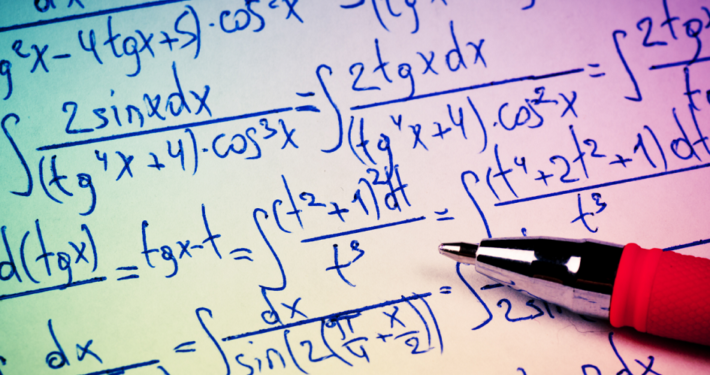 g²x-4tgx+5)·cos²x
∫ 2sinxdx/(tg⁴x+4)·cos³x = ∫ 2tgxdx/(tg⁴x+4)·cos²x = ∫ 2tg
d(tgx) = tgx-t = ∫ (t²+1)²dt/t³ = ∫ (t⁴+2t²+1)dt/t³
dx = ∫ dx/sin(2(π/4+x/2)) = ∫
dx